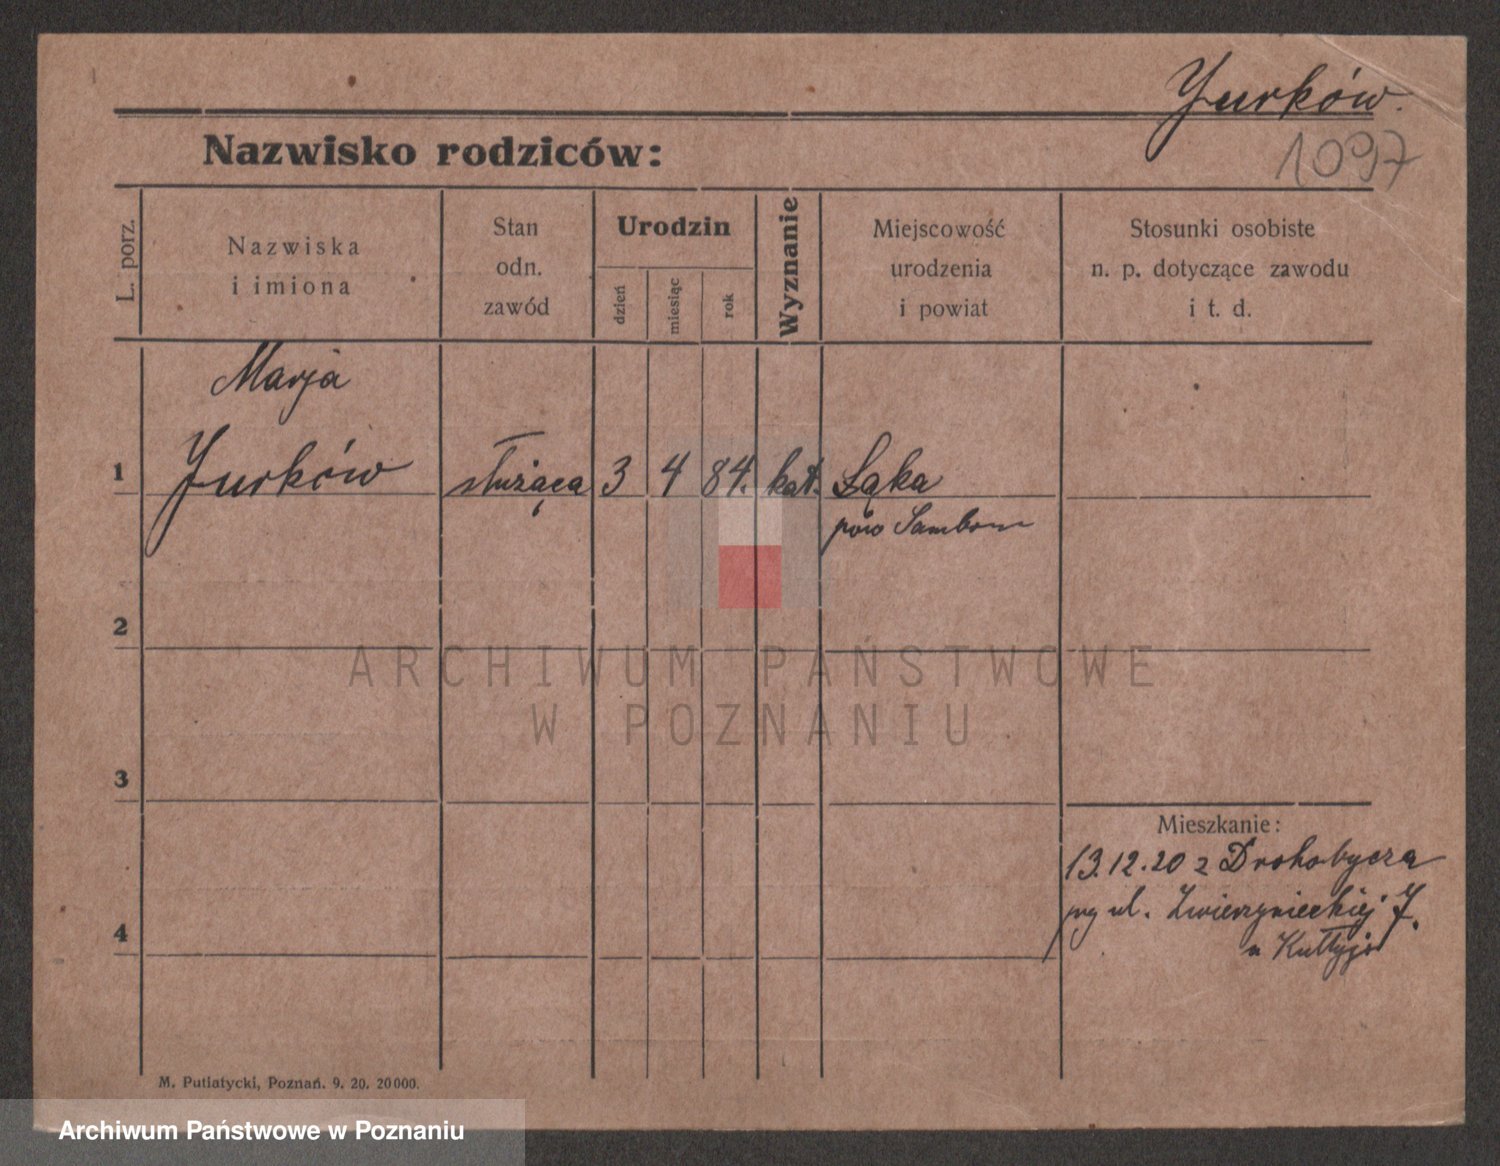 Yurków.
1097
Nazwisko rodziców:
L. porz.
Nazwiska
i imiona
Stan
odn.
zawód
Urodzin
dzień
miesiąc
rok
Wyznanie
Miejscowość
urodzenia
i powiat
Stosunki osobiste
n. p. dotyczące zawodu
i t. d.
Marja
1 Yurków służąca 3 4 84. kat. Łąka
pow Sambor
2
3
4
Mieszkanie:
13.12.20 z Drohobycza
ul. Zwierzynieckiej 7.
u
M. Putiatycki, Poznań. 9. 20. 20000.
ARCHIWUM PAŃSTWOWE
W POZNANIU
Archiwum Państwowe w Poznaniu